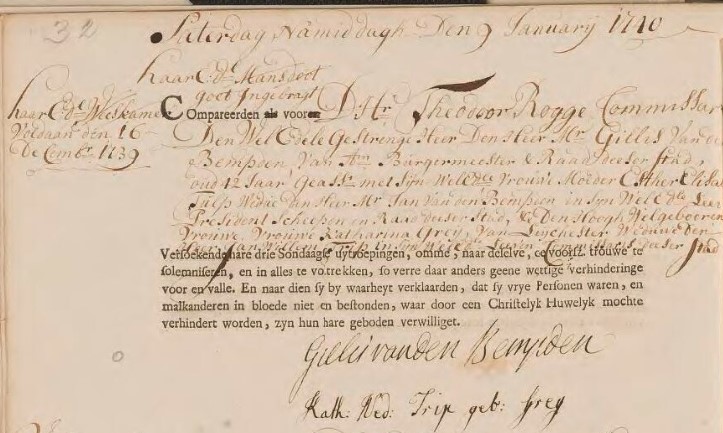 32
Saterdag Namiddagh Den 9 January 1740
haar E: de Mans doot
goet Ingebragt
haar E: de Weeskamer
Voldaan den 16
Decembr. 1739
Compareerden als vooren D: Hr. Theodoor Rogge Commissar
Den Wel Edele Gestrenge Heer Den Heer Mr. Gillis Van de
Bempden Van Am Burgermeester & Raad deeser Stad,
oud 42 Jaar Geasst. met Sijn Wel Ede Vrouwe Moeder Esther Elisa
Tulp Wedue Den Heer Mr. Jan Van den Bempden in Sijn Wel Ede Leev
President Scheepen en Raad deeser Stad, & Den Hoogh Welgebooren
Vrouwe, Vrouwe Katharina Grey, Van Leychester Weduwe den
Heer Jan Willem Trip in Sijn Wel Ede Leeven Commissaris deeser Stad
Versoekende hare drie Sondaagse uytroepingen, omme, naar deselve, de voorsz. trouwe te
solemniseren, en in alles te voltrekken, so verre daar anders geene wettige verhinderinge
voor en valle. En naar dien sy by waarheyt verklaarden, dat sy vrye Personen waren, en
malkanderen in bloede niet en bestonden, waar door een Christelyk Huwelyk mochte
verhindert worden, zyn hun hare geboden verwilliget.
Gillis van den Bempden
Kath: Wed: Trip geb: Grey